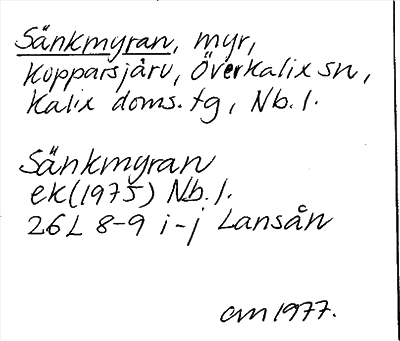 Sänkmyran, myr,
Kopparsjärv, Överkalix sn,
Kalix doms. tg, Nb. l.
Sänkmyran
ek (1975) Nb. l.
26L 8-9 i-j Lansån
am 1977.